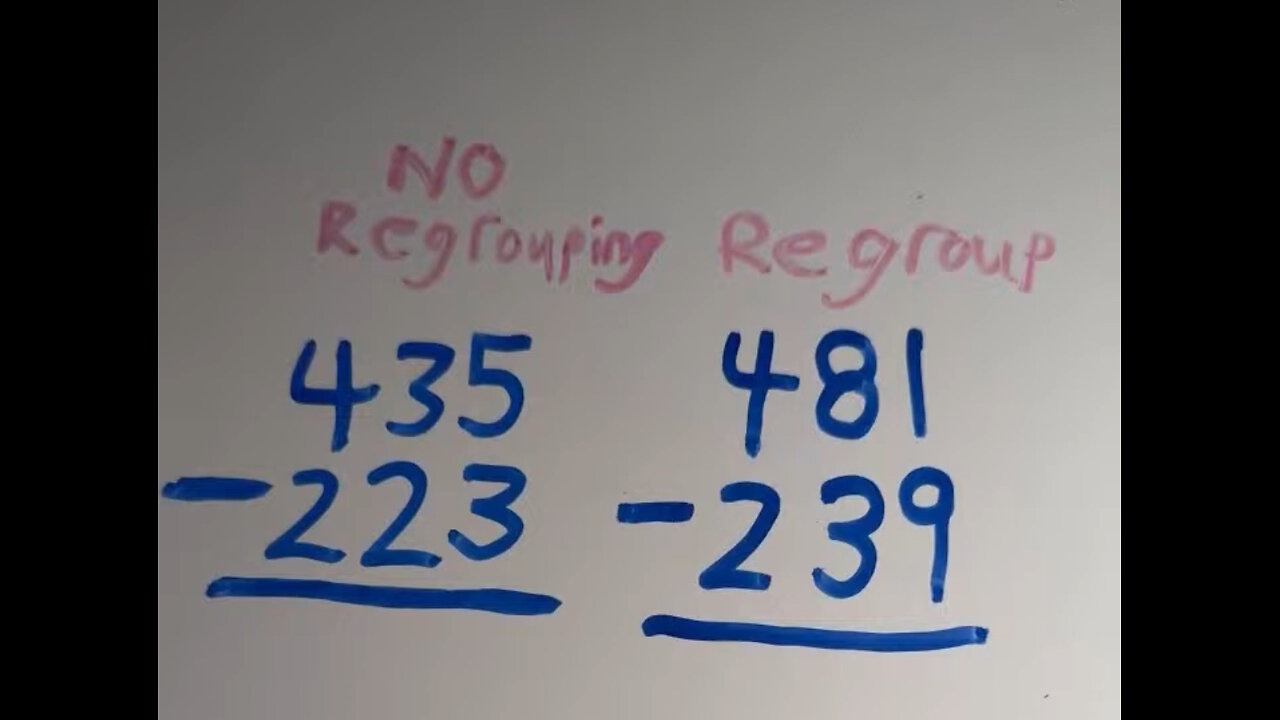 NO
Regrouping
Regroup
435
-223
481
-239